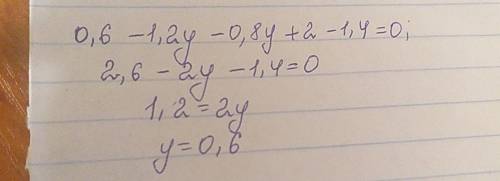 0,6 -1,2y -0,8y +2 -1,4=0;
2,6 -2y -1,4=0
1,2=2y
y=0,6